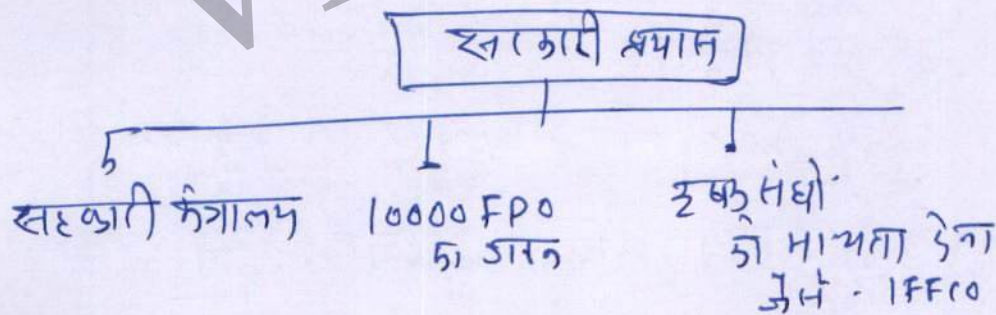 सरकारी प्रयास
सहकारी मंत्रालय
10000 FPO
का गठन
कृषक संघो
को मान्यता देना
जैसे - IFFCO